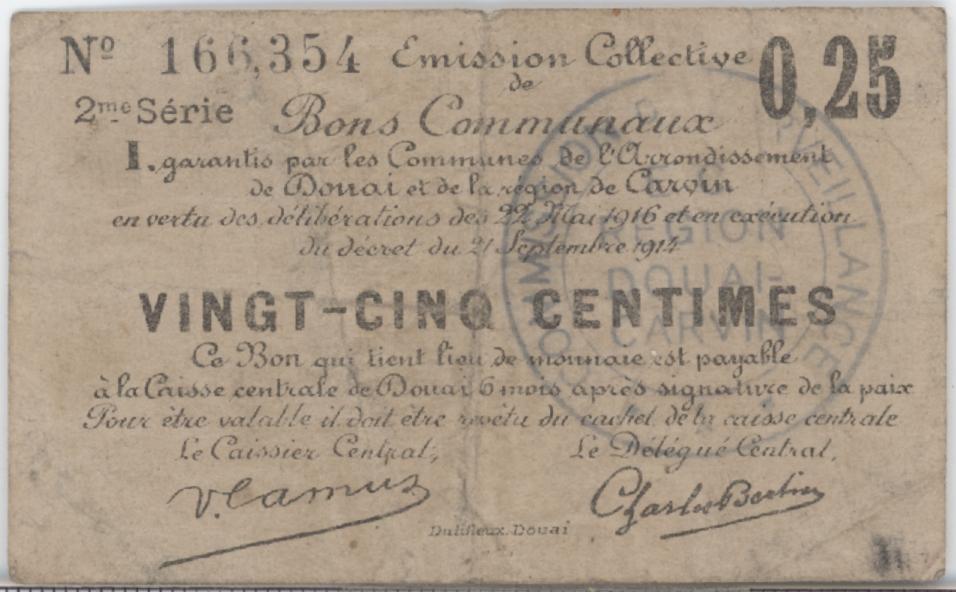 Nº 166,354 Emission Collective 0,25
de
2me Série Bons Communaux
I. garantis par les Communes de l'Arrondissement
de Douai et de la région de Carvin
en vertu des délibérations des 22 Mai 1916 et en exécution
du décret du 21 Septembre 1914
VINGT-CINQ CENTIMES
Ce Bon qui tient lieu de monnaie est payable
à la Caisse centrale de Douai 6 mois après signature de la paix
Pour être valable il doit être revêtu du cachet de la caisse centrale
Le Caissier Central, Le Délégué Central,
V. Camus Charles Bertin
Douai
COMMISSION DE SURVEILLANCE
REGION
DOUAI-
CARVIN